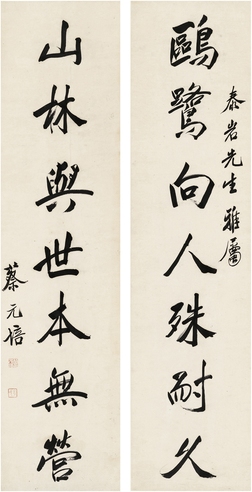 鷗鷺向人殊耐久
泰岩先生雅屬
山林與世本無營
蔡元培